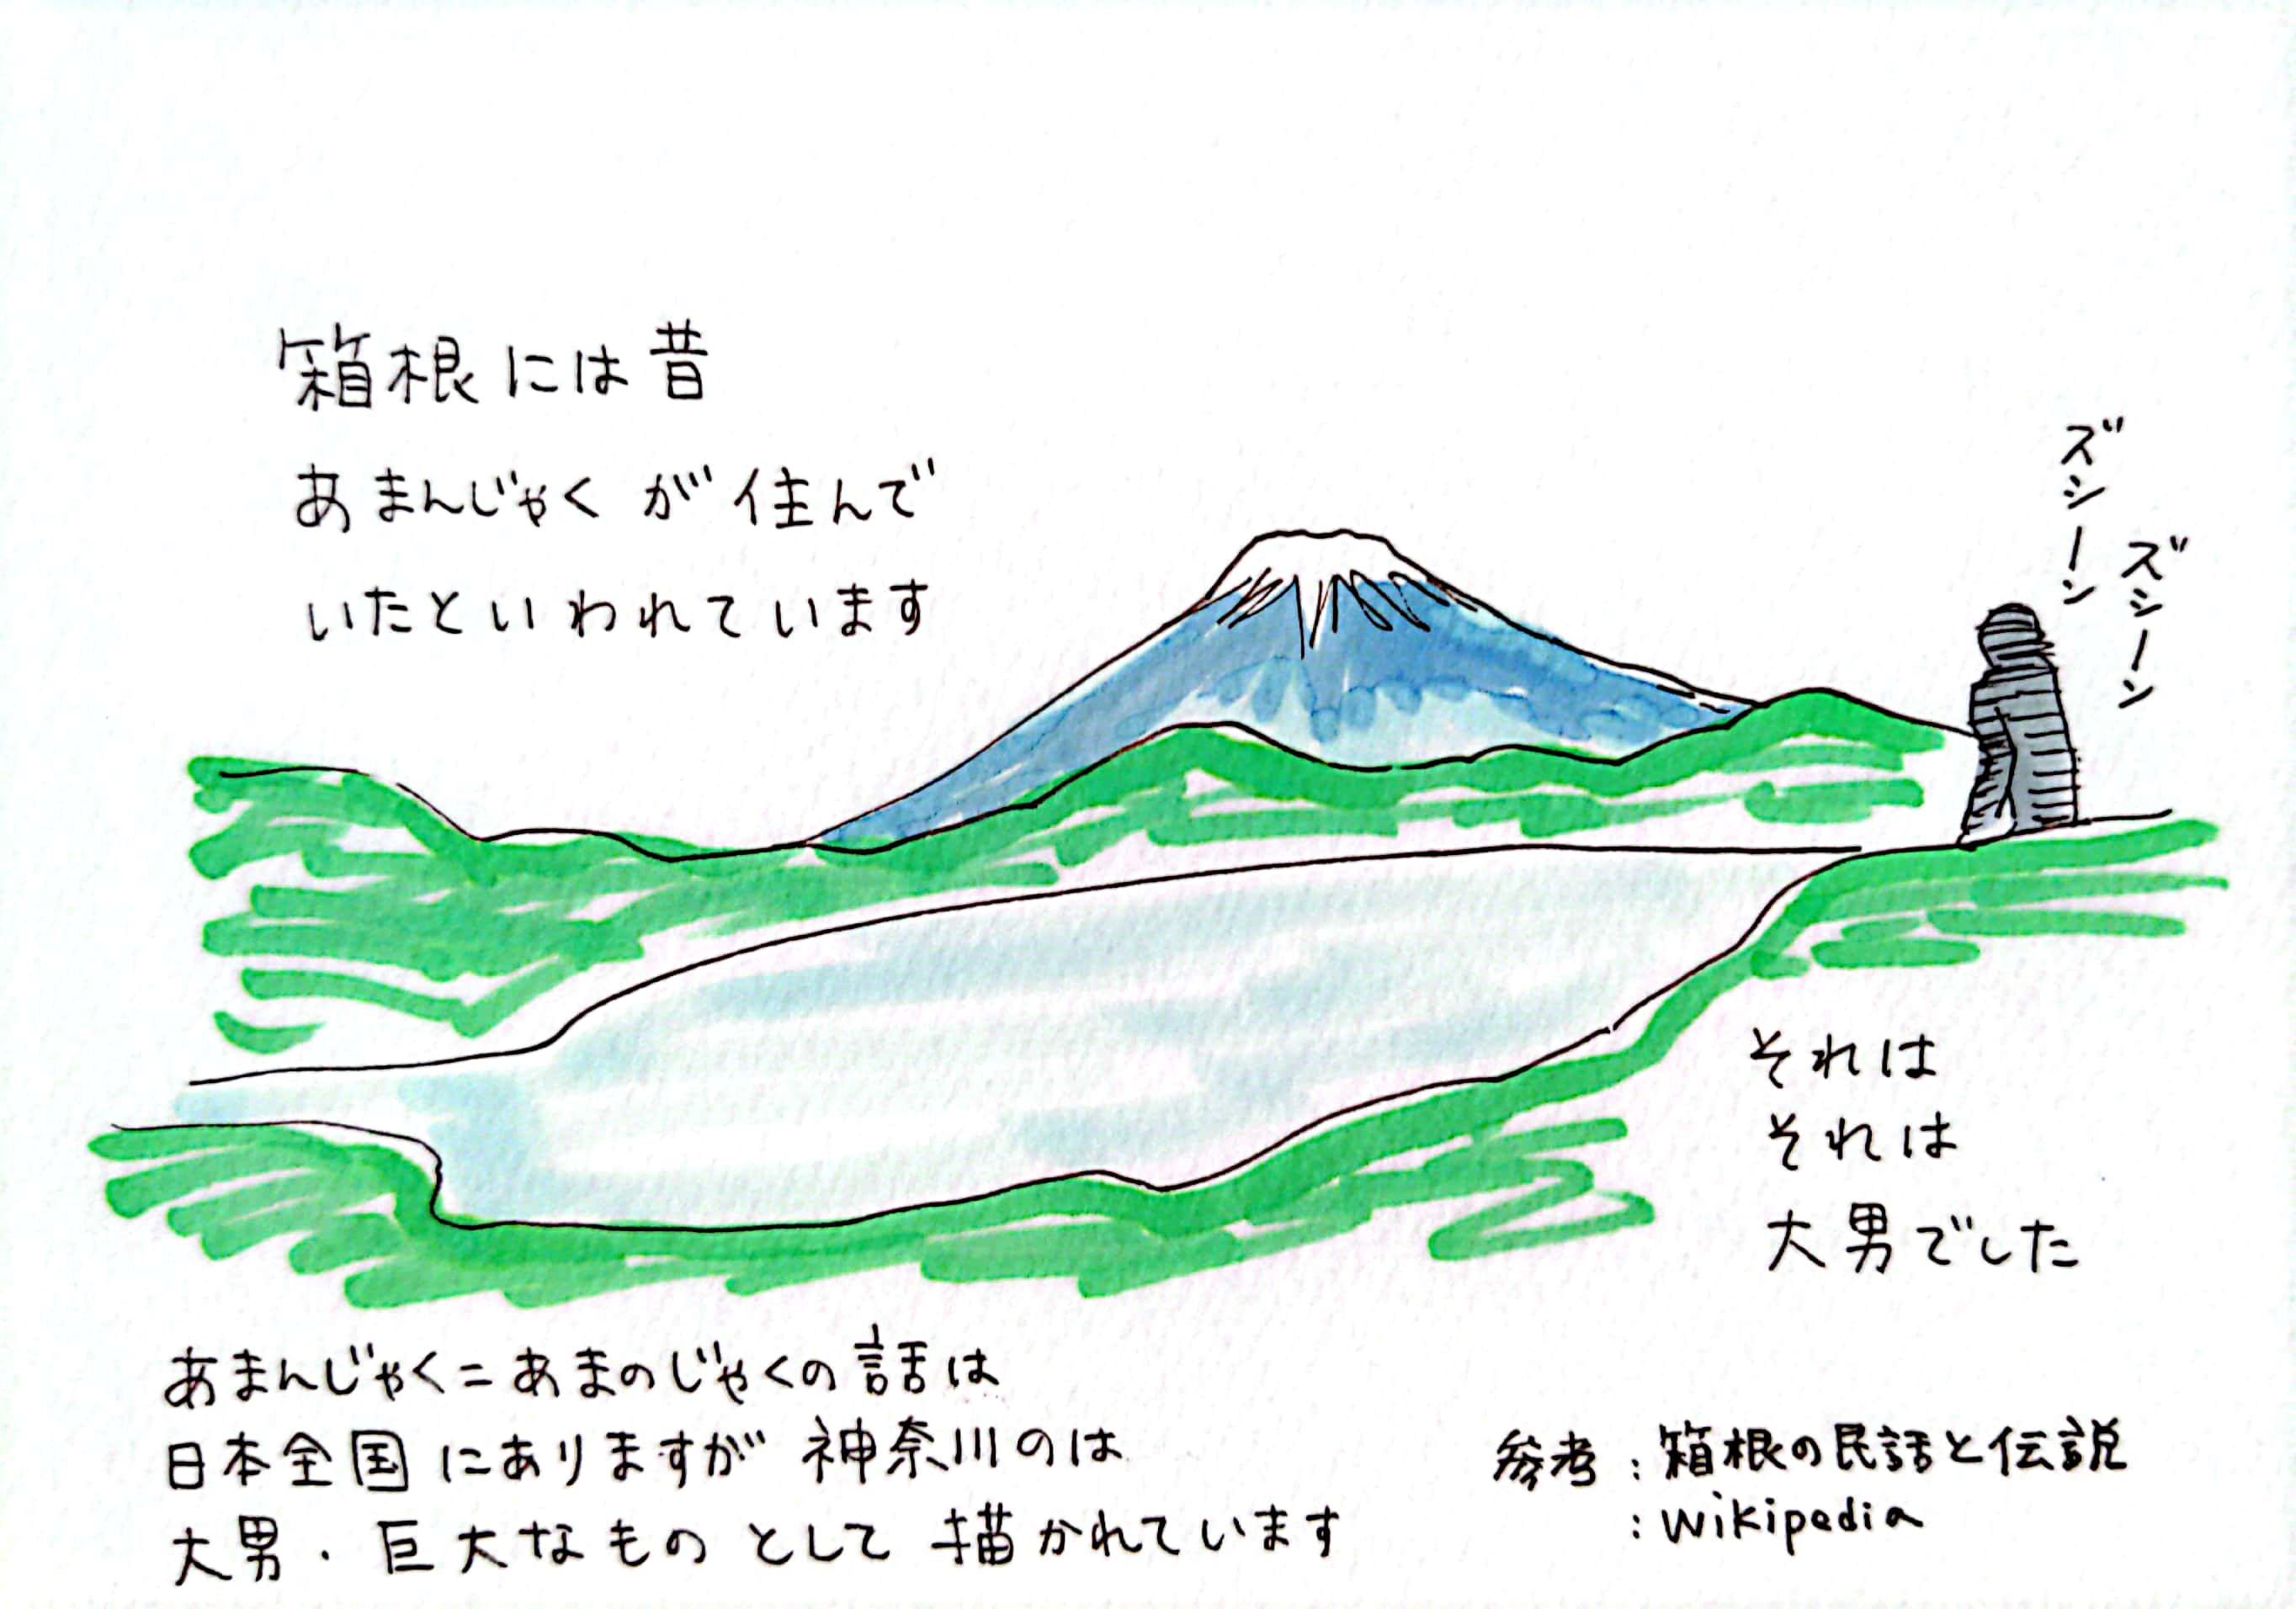 箱根には昔
あまんじゃくが住んで
いたといわれています
ズシーン
ズシーン
それは
それは
大男でした
あまんじゃく=あまのじゃくの話は
日本全国にありますが神奈川のは
大男・巨大なものとして描かれています
参考:箱根の民話と伝説
:Wikipedia